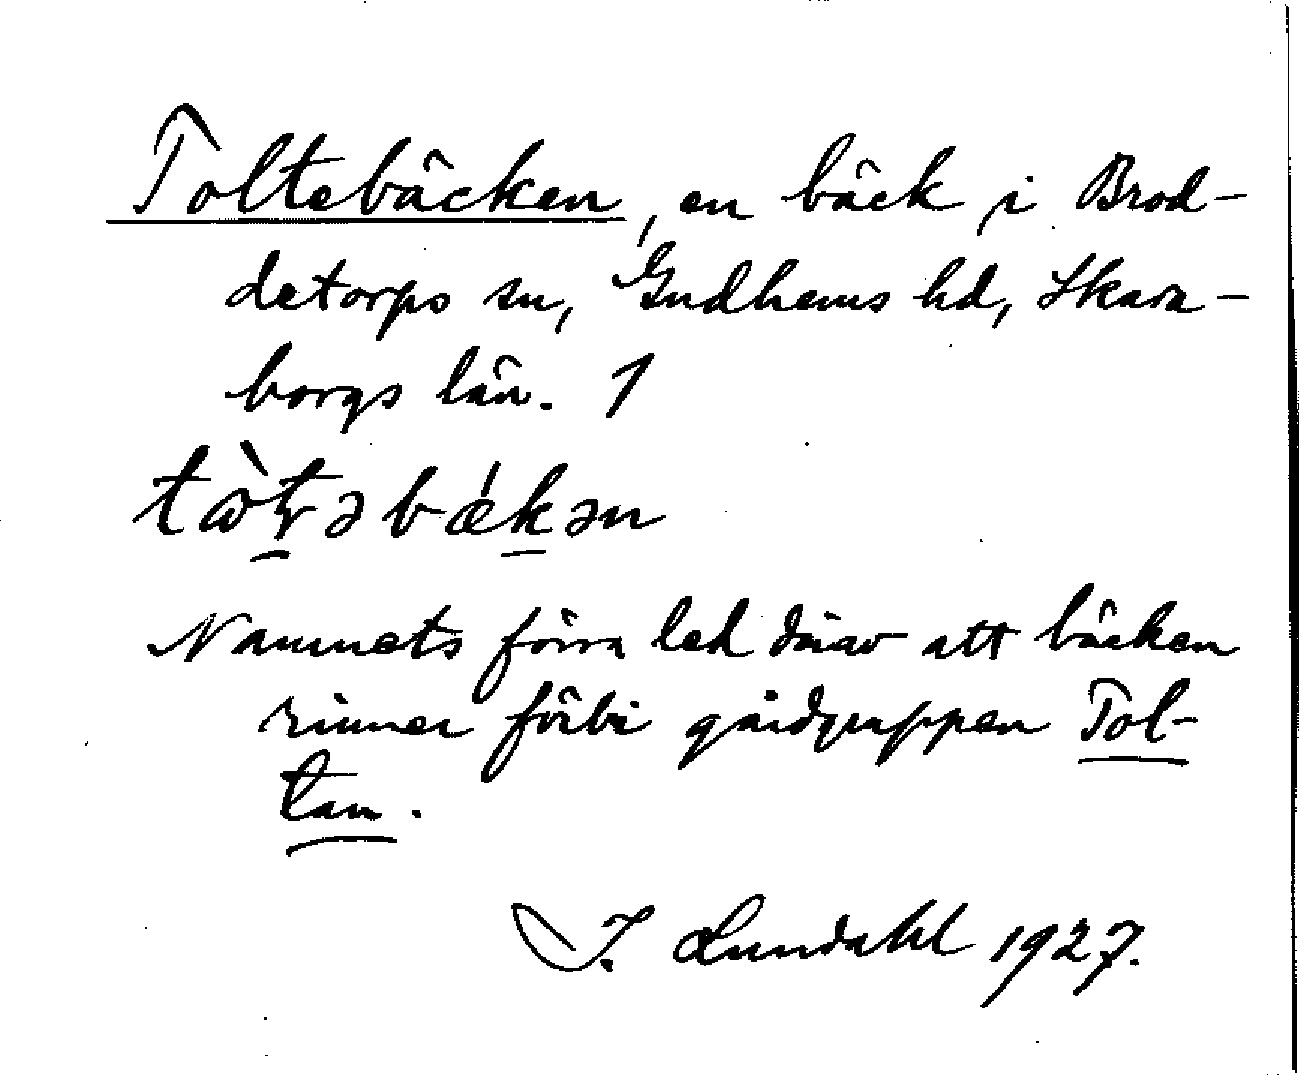 Toltebäcken, en bäck i Brod-
detorps sn, Gudhems hd, Skara-
borgs län. 1
tò̵ţəbǽkən
Namnets förra led därav att bäcken
rinner förbi gårdgruppen Tol-
tan.
I. Lundahl 1927.